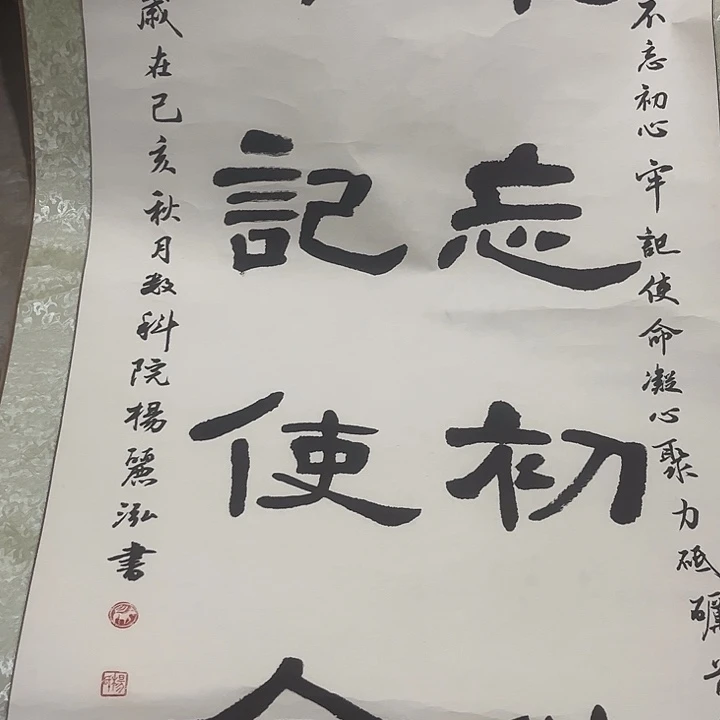 不忘初心牢記使命凝心聚力砥礪
忘初
記使
歲在己亥秋月数科院楊麗泓書